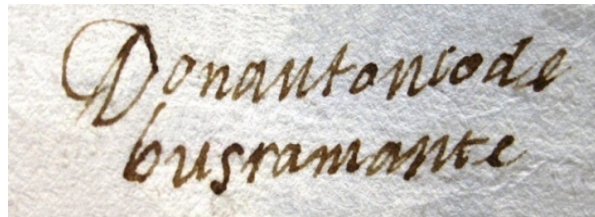 Donantoniode
busramante